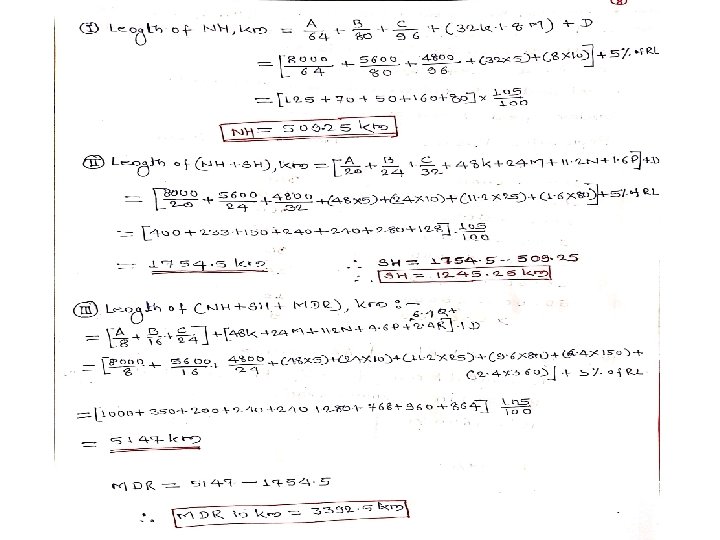 (8)
(I) Length of NH, km = A/64 + B/80 + C/96 + (32k + 8M) + D
= [8000/64 + 5600/80 + 4800/96 + (32×5)+(8×10)] + 5% of RL
= [125 + 70 + 50 + 160 + 80] × 105/100
NH = 509.25 km
(II) Length of (NH + SH), km = [A/20 + B/24 + C/32 + 48k + 24M + 11.2N + 1.6P] + D
= [8000/20 + 5600/24 + 4800/32 + (48×5)+(24×10)+(11.2×25)+(1.6×80)] + 5% of RL
= [400 + 233 + 150 + 240 + 240 + 280 + 128] 105/100
= 1754.5 km ∴ SH = 1754.5 - 509.25
∴ SH = 1245.25 km
(III) Length of (NH + SH + MDR), km :-
6.4Q+
= [A/8 + B/16 + C/24] + [48k + 24M + 112N + 9.6P + 2.4R] + D
= [8000/8 + 5600/16 + 4800/24 + (48×5)+(24×10)+(11.2×25)+(9.6×80)+(6.4×150)+
(2.4×360)] + 5% of RL
= [1000+350+200+240+240+280+768+960+864] 105/100
= 5147 km
MDR = 5147 - 1754.5
∴ MDR in km = 3392.5 km